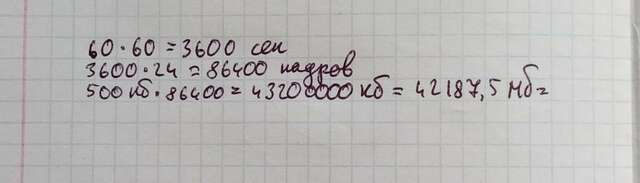 60·60 = 3600 сек
3600·24 = 86400 кадров
500 кб·86400 = 43200000 кб = 42187,5 Мб =